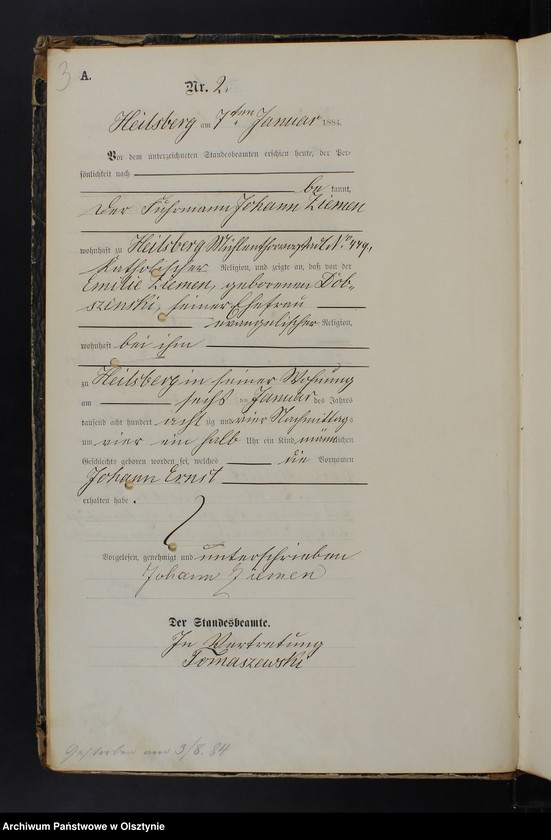 3
A.
Nr. 2.
Heilsberg am 7ten Januar 1884.
Vor dem unterzeichneten Standesbeamten erschien heute, der Per-
sönlichkeit nach
be kannt,
der Fuhrmann Johann Ziemen
wohnhaft zu Heilsberg Mühlenthorvorstadt No 449,
katholischer Religion, und zeigte an, daß von der
Emilie Ziemen, geborenen Dob-
szinski, seiner Ehefrau
evangelischer Religion,
wohnhaft bei ihm
zu Heilsberg in seiner Wohnung
am sechsten Januar des Jahres
tausend acht hundert achtzig und vier Nachmittags
um vier ein halb Uhr ein Kind männlichen
Geschlechts geboren worden sei, welches die Vornamen
Johann Ernst
erhalten habe.
Vorgelesen, genehmigt und unterschrieben
Johann Ziemen
Der Standesbeamte.
In Vertretung
Tomaszewski
Gestorben am 3/8. 84
Archiwum Państwowe w Olsztynie